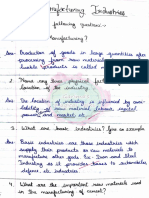 Manufacturing Industries
following questions :-
manufacturing?
Ans: Production of goods in large quantities after
processing from raw materials to more
valuable products is called
2. Name any three physical factors for the
location of the industry.
Ans: The location of industry is influenced by avai-
lability of raw material, labour, capital,
power, and market etc.
3. What are basic industries? Give an example
Ans: Basic industries are those industries which
supply their products as raw materials to
manufacture other goods Ex: Iron and Steel
industry as it provides to automobiles,
defence, etc industries.
4. What are the important raw materials used
in the manufacturing of cement?